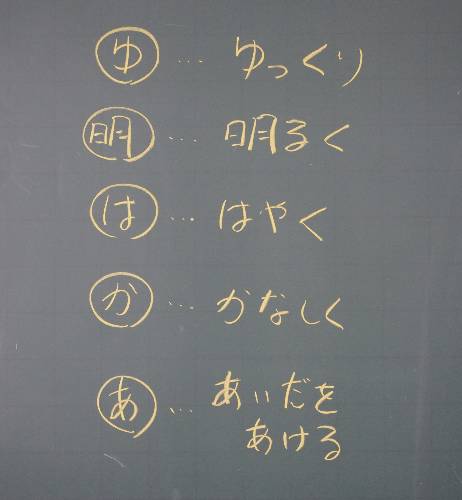 ゆ … ゆっくり
明 … 明るく
は … はやく
か … かなしく
あ … あいだを
あける